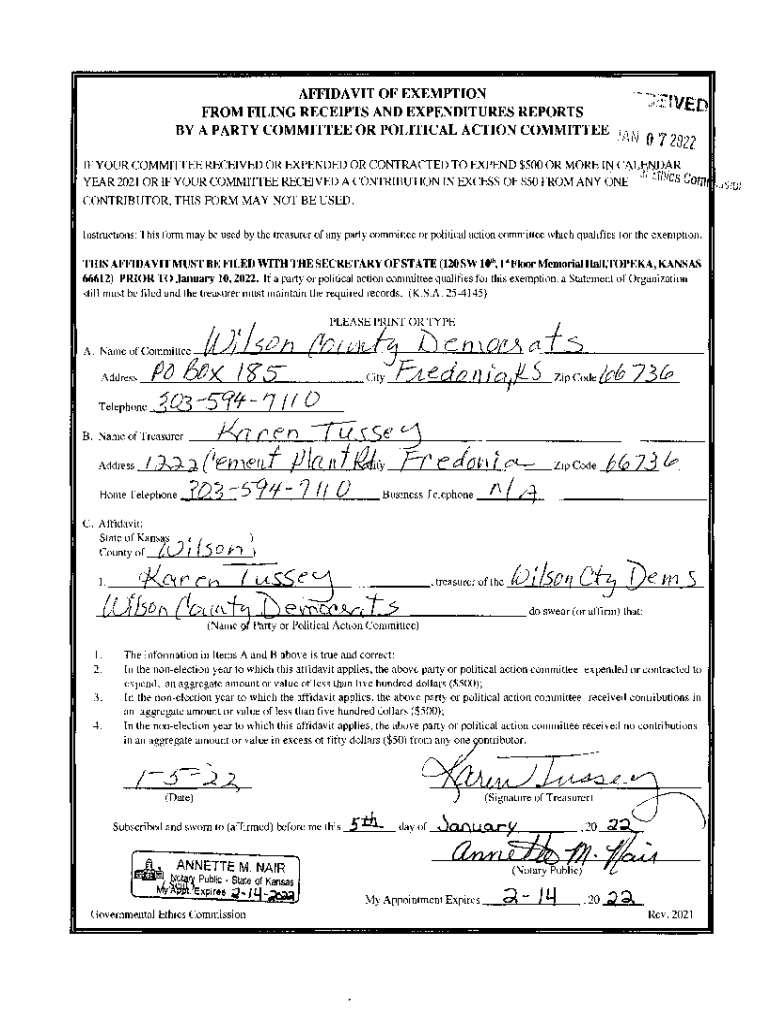 AFFIDAVIT OF EXEMPTION
FROM FILING RECEIPTS AND EXPENDITURES REPORTS
BY A PARTY COMMITTEE OR POLITICAL ACTION COMMITTEE
JAN 07 2022
IF YOUR COMMITTEE RECEIVED OR EXPENDED OR CONTRACTED TO EXPEND $500 OR MORE IN CALENDAR
YEAR 2021 OR IF YOUR COMMITTEE RECEIVED A CONTRIBUTION IN EXCESS OF $50 FROM ANY ONE
CONTRIBUTOR, THIS FORM MAY NOT BE USED.
Instructions: This form may be used by the treasurer of any party committee or political action committee which qualifies for the exemption.
THIS AFFIDAVIT MUST BE FILED WITH THE SECRETARY OF STATE (120 SW 10th, 1st Floor Memorial Hall, TOPEKA, KANSAS
66612) PRIOR TO January 10, 2022. If a party or political action committee qualifies for this exemption, a Statement of Organization
still must be filed and the treasurer must maintain the required records. (K.S.A. 25-4145)
PLEASE PRINT OR TYPE
A. Name of Committee Wilson County Democrats
Address PO Box 185 City Fredonia, KS Zip Code 66736
Telephone 303-594-7110
B. Name of Treasurer Karen Tussey
Address 1222 Cement Plant Rd City Fredonia Zip Code 66736
Home Telephone 303-594-7110 Business Telephone N/A
C. Affidavit:
State of Kansas )
County of Wilson )
I, Karen Tussey, treasurer of the Wilson Cty Dems
Wilson County Democrats do swear (or affirm) that:
(Name of Party or Political Action Committee)
1. The information in Items A and B above is true and correct;
2. In the non-election year to which this affidavit applies, the above party or political action committee expended or contracted to
expend, an aggregate amount or value of less than five hundred dollars ($500);
3. In the non-election year to which the affidavit applies, the above party or political action committee received contributions in
an aggregate amount or value of less than five hundred dollars ($500);
4. In the non-election year to which this affidavit applies, the above party or political action committee received no contributions
in an aggregate amount or value in excess of fifty dollars ($50) from any one contributor.
1-5-22 Karen Tussey
(Date) (Signature of Treasurer)
Subscribed and sworn to (affirmed) before me this 5th day of January, 20 22
Annette M. Nair
(Notary Public)
ANNETTE M. NAIR
Notary Public - State of Kansas
My Appt. Expires 2-14-2022
My Appointment Expires 2-14, 20 22
Governmental Ethics Commission Rev. 2021